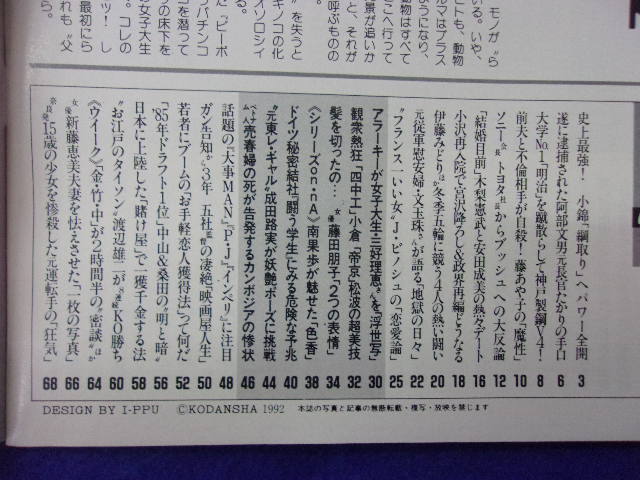 モノが〝ら
いる。いや、
ことも、動物
ルマはプラス
ようになり、
動物はすべて
こへ行って
景が追いか
と、それが
呼ぶものの
を失うと
キノコの化
オソロシイ
た「ピーポ
うパチンコ
コを潜って
の床下を
女子大生
。コレの
ッ！し
最初にら
れも〝父
ら。
史上最強！小錦「綱取り」へパワー全開 3
遂に逮捕された阿部文男元長官たかりの手口 6
大学No.1「明治」を蹴散らして神戸製鋼V4！ 8
前夫と不倫相手が自殺！藤あや子の「魔性」 10
ソニー会長トヨタ社長からブッシュへの大反論 12
「結婚目前」木梨憲武と安田成美の熱々デート 16
小沢再入院で宮沢降ろし&政界再編どうなる 18
伊藤みどりほか冬季五輪に競う4人の熱い闘い 20
元従軍慰安婦・文玉珠さんが語る「地獄の日々」 22
〝フランス一いい女〟J・ビノシュの「恋愛論」 25
アラーキーが女子大生・三好理恵さんを「浮世写」 30
観衆熱狂「四中工」小倉「帝京」松波の超美技 32
髪を切ったの…女優藤田朋子「2つの表情」 34
《シリーズon・nA》南果歩が魅せた「色香」 38
ドイツ秘密結社「闘う学生」にみる危険な予兆 40
〝元東レ・ギャル〟成田路実が妖艶ポーズに挑戦 44
ベトナム人売春婦の死が告発するカンボジアの惨状 46
話題の「大事MAN」「P・J」「インペリ」に注目 48
ガン告知から3年 五社監督の凄絶「映画屋人生」 50
若者にブームの「お手軽恋人獲得法」って何だ 52
「85年ドラフト1位」中山&桑田の〝明と暗〟 56
日本に上陸した「賭け屋」で一獲千金する法 58
〝お江戸のタイソン〟渡辺雄二が6連続KO勝ち 60
《ウイーク》「金・竹・中」が2時間半の〝密談〟ほか 64
女優新藤恵美夫妻を怯えさせた「一枚の写真」 66
奈良発15歳の少女を惨殺した元運転手の「狂気」 68
DESIGN BY I-PPU ©KODANSHA 1992 本誌の写真と記事の無断転載・複写・放映を禁じます